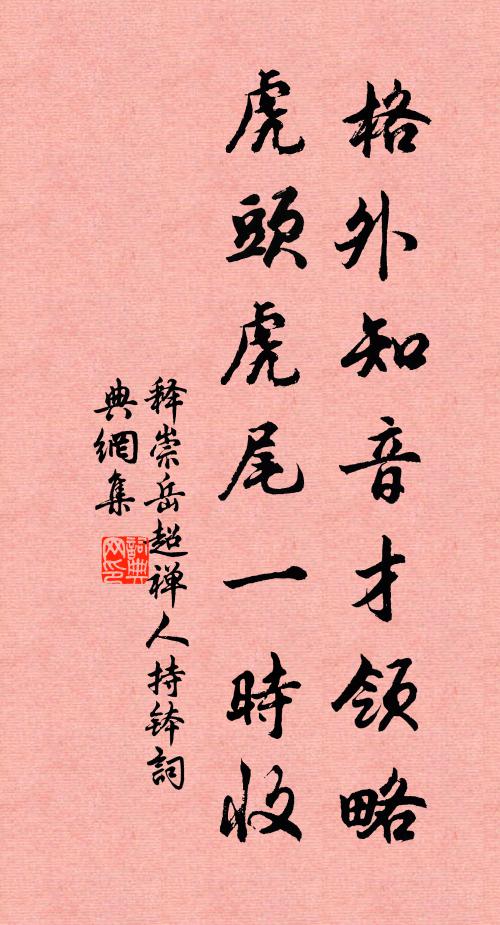 格外知音才领略
虎頭虎尾一時收
释崇岳超禅人持钵詞
典網集
詞典网印